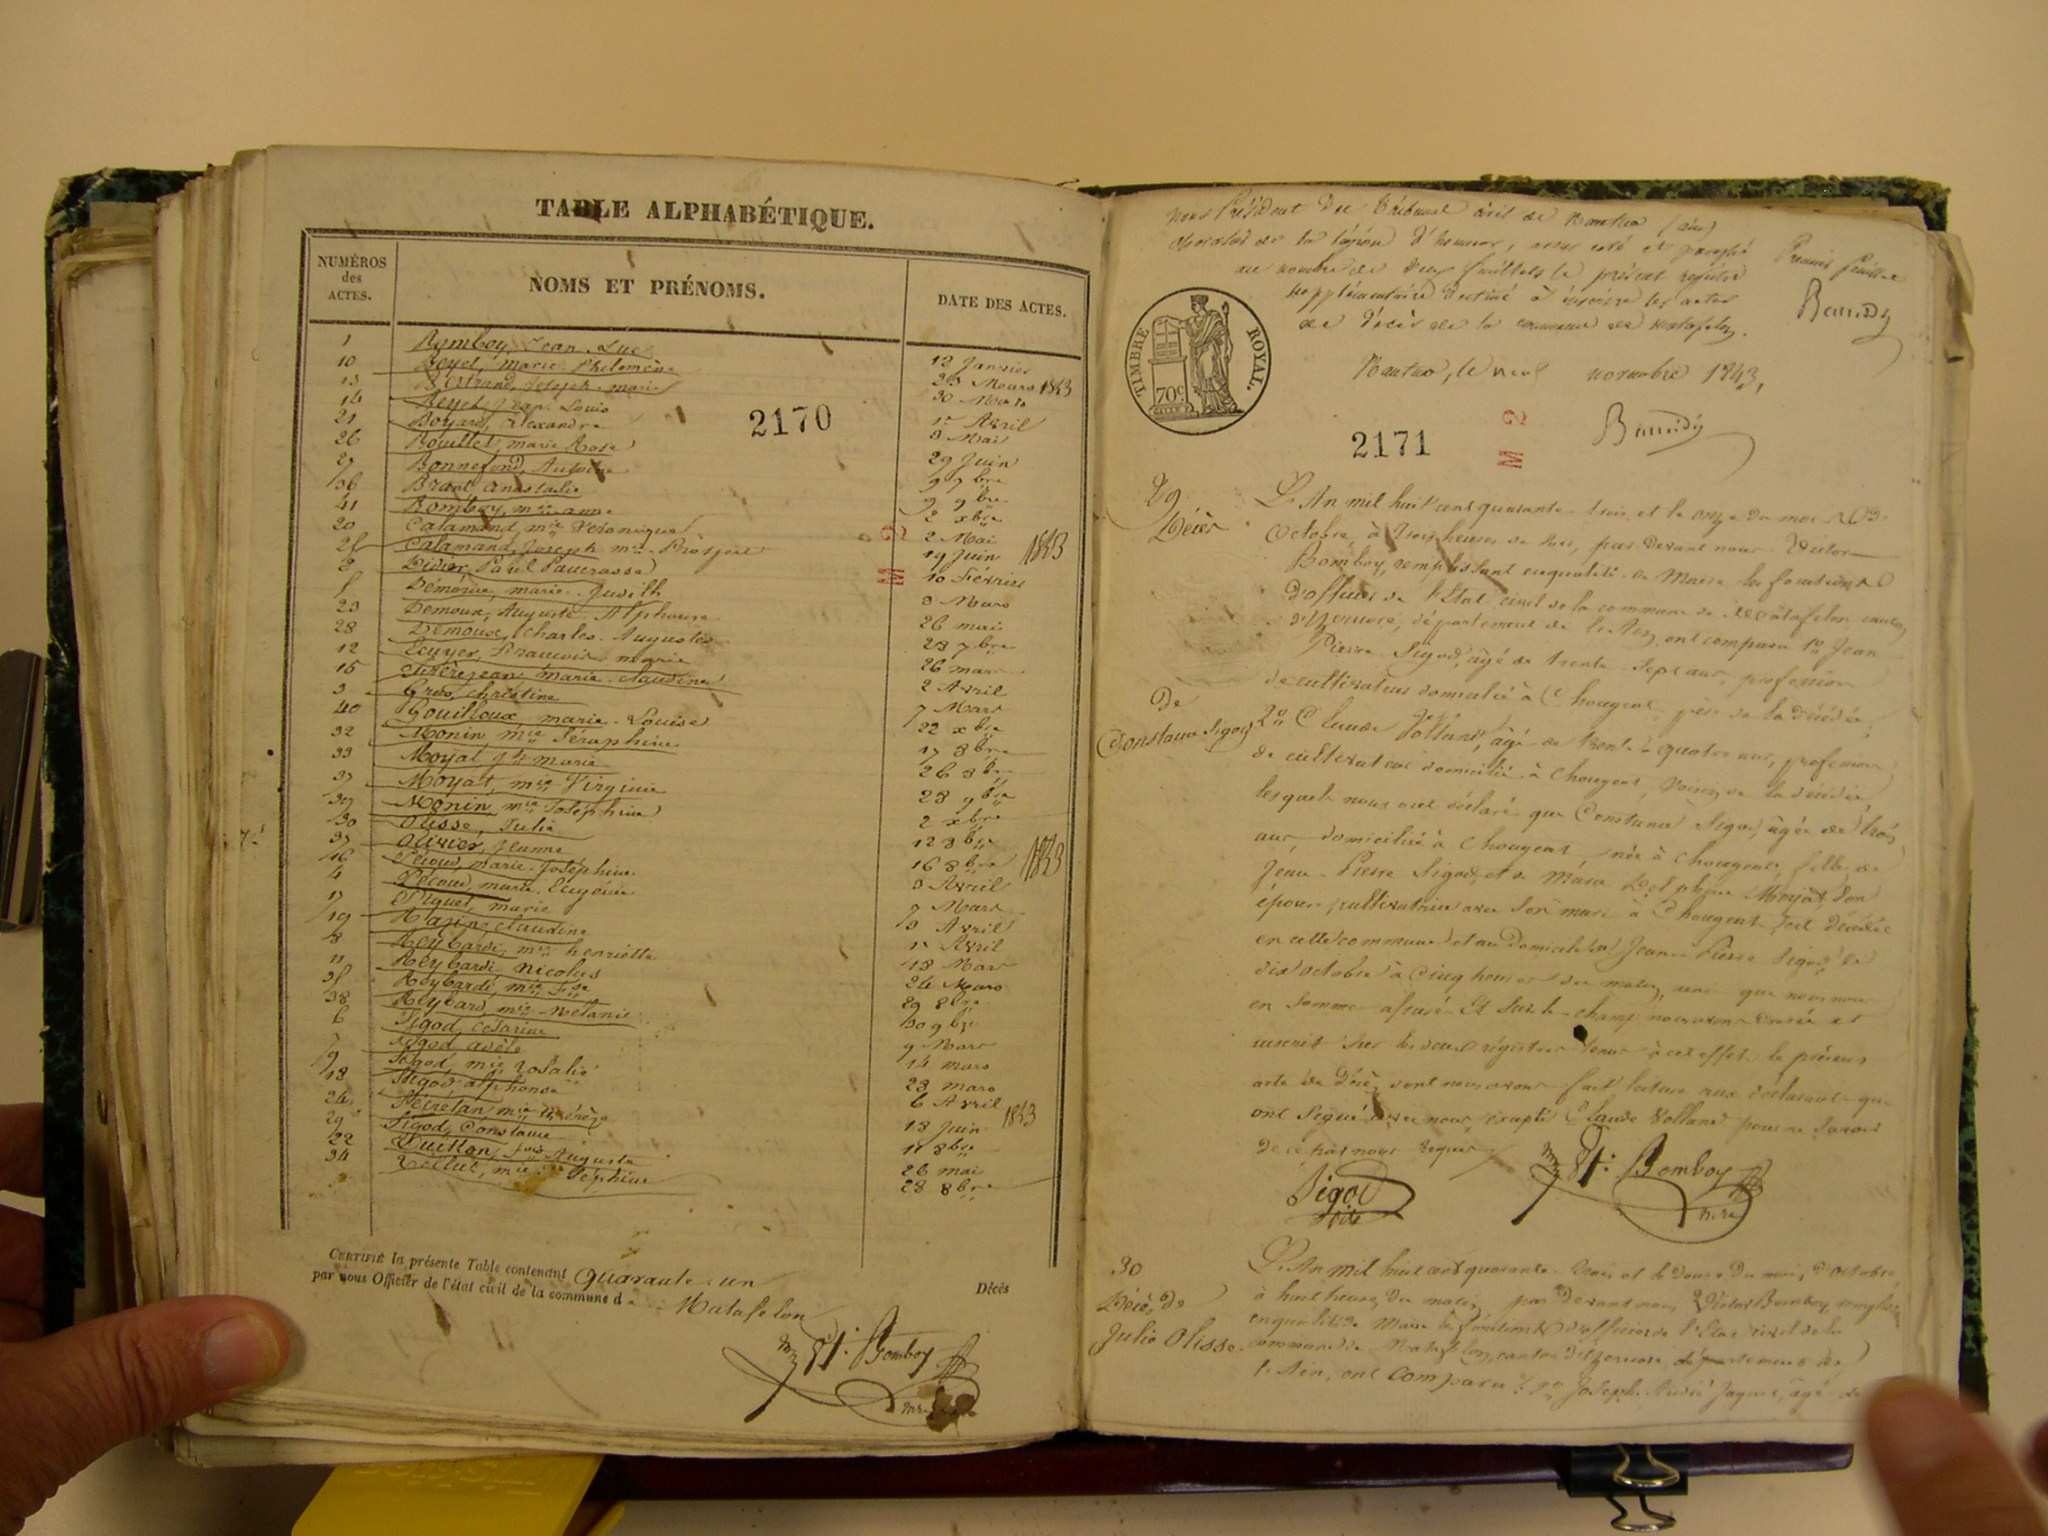 TABLE ALPHABÉTIQUE.
NUMÉROS
des
ACTES.
NOMS ET PRÉNOMS.
DATE DES ACTES.
1 Bomboy, Jean Luc 12 Janvier
10 Beyet, Marie Philomène 23 Mars 1843
13 Bertrand, Joseph marie 30 Mars
14 Beyet, Jean Louis 1r Avril
21 Boyard, Alexandre 3 Mai
26 Bouillet, marie Rose 29 Juin
27 Bonnefond, Antoine 9 7bre
36 Brant Anastasie 9 9bre
41 Bomboy, mie anne 2 xbre
20 Calamand, mie Véronique 2 Mai
25 Calamand, Joseph mie Prosper 19 Juin 1843
2 Didier, Paul Pancrasse 10 Février
5 Démôme, marie Judith 3 Mars
23 Demoux, Auguste Alphonse 26 mai
28 Démoux, Charles Auguste 23 7bre
12 Ecuyer, François marie 26 mars
15 marie claudine 2 Avril
3 Gros, Christine 7 Mars
40 Gouilloux, marie Louise 22 xbre
32 Monin, mie Séraphine 17 8bre
33 Moyat, Jh marie 26 8bre
37 Moyat, mie Virginie 28 9bre
39 Monin, mie Joséphine 2 xbre
30 Olisse, Julie 12 8bre
31 Olivier, Jeanne 16 8bre 1843
16 Pécoud, marie Joséphine 3 Avril
4 Pécoud, marie Eugénie 7 Mars
17 Piguet, marie 3 Avril
19 Razin, claudine 15 Avril
8 Reybard, mie henriette 18 Mars
11 Reybard, Nicolas 24 Mars
35 Reybard, mie Jse 29 8bre
38 Reybard, mie Mélanie 30 9bre
6 Sigod, Césarine 9 Mars
7 Sigod, Adèle 14 mars
9 Sigod, mie rosalie 23 mars
18 Sigod, alphonse 6 Avril
24 mie Thérèse 18 Juin 1843
29 Sigod, Constance 11 8bre
22 Auguste 26 mai
34 mie Séphine 28 8bre
2170
M 2
CERTIFIÉ la présente Table contenant Quarante un Décès
par nous Officier de l'état civil de la commune de Matafelon
St. Bomboy
mre
nous Président du Tribunal civil de Nantua (ain)
chevalier de la légion d'honneur, avons coté et paraphé
au nombre de deux feuillets le présent registre
supplémentaire destiné à inscrire les actes
de décès de la commune de Matafelon.
Nantua, le neuf novembre 1843,
Premier feuillet
Baudy
Baudy
TIMBRE ROYAL.
70c
2171
M 2
29
Décès
De
Constance Sigod
L'An mil huit cent quarante trois et le onze du mois de
Octobre, à trois heures du soir, par devant nous Victor
Bomboy, remplissant en qualité de Maire les fonctions
d'officier de l'Etat civil de la commune de Matafelon canton
d'Izernore, département de l'Ain, ont comparu 1o Jean
Pierre Sigod, âgé de trente sept ans, profession
de cultivateur domicilié à Chougeat, père de la décédée,
2o Claude Volland, âgé de trente quatre ans, profession
de cultivateur domicilié à Chougeat, voisin de la décédée,
lesquels nous ont déclaré que Constance Sigod, âgée de trois
ans, domiciliée à Chougeat, née à Chougeat, fille de
Jean Pierre Sigod, et de Marie Delphine Moyat son
épouse, cultivatrice avec son mari à Chougeat est décédée
en cette commune et au domicile de Jean Pierre Sigod le
dix octobre à cinq heures du matin, ainsi que nous nous
en sommes assuré. Et sur le champ nous avons dressé et
inscrit sur les deux régistres tenus à cet effet le présent
acte de décès dont nous avons fait lecture aux déclarants qui
ont signé avec nous, excepté Claude Volland pour ne savoir
de ce par nous requis
Sigod
St. Bomboy
mre
30
Décès de
Julie Olisse
L'An mil huit cent quarante trois et le douze du mois d'octobre
à huit heures du matin, par devant nous Victor Bomboy remplissant
en qualité de Maire les fonctions d'officier de l'Etat civil de la
commune de Matafelon, canton d'Izernore, département de
l'Ain, ont comparu 1o Joseph Jaquet, âgé de